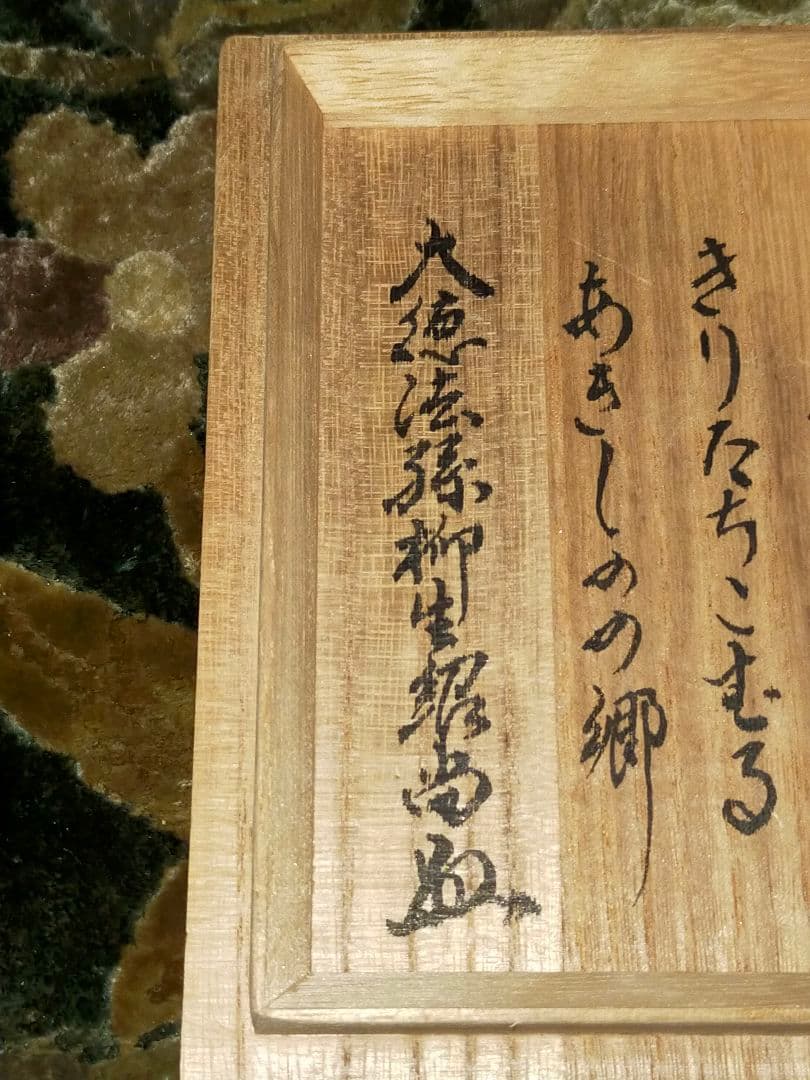 きりたちこむる
あきしのの郷
大徳法孫柳生耀尚